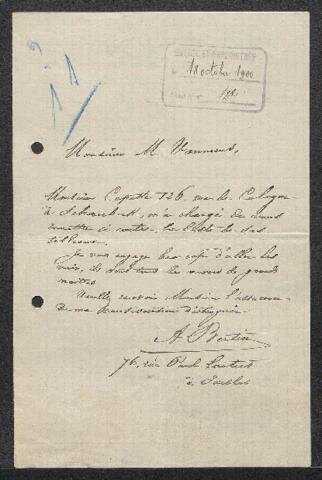 18 octobre 1900
Monsieur M
Monsieur Capette 126, rue de Cologne
à Schaerbeek, m'a chargé de vous
remettre ci contre, la liste de ses
tableaux.
Je vous engage beaucoup d'aller les
voir, ils sont tous les œuvres de grands
maîtres
Veuillez recevoir Monsieur l'assurance
de ma considération distinguée.
A Bertin
76, rue Paul
à